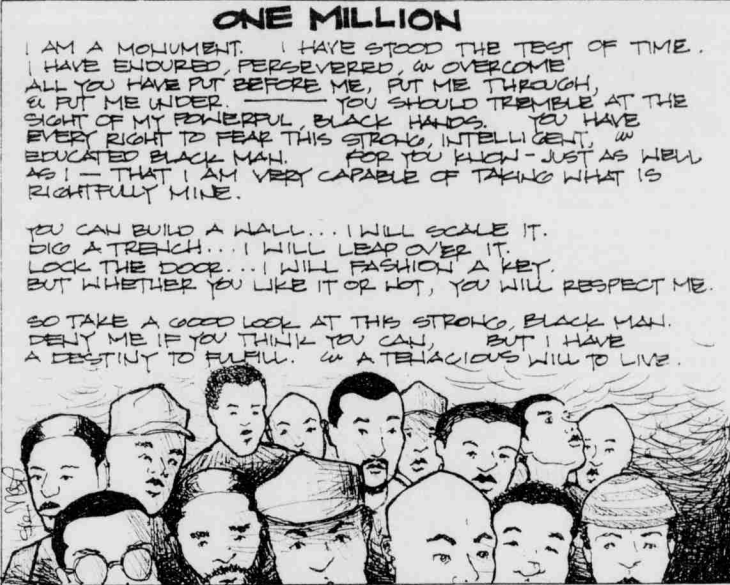 ONE MILLION
I AM A MONUMENT. I HAVE STOOD THE TEST OF TIME.
I HAVE ENDURED, PERSEVERRED, & OVERCOME
ALL YOU HAVE PUT BEFORE ME, PUT ME THROUGH,
& PUT ME UNDER. ——— YOU SHOULD TREMBLE AT THE
SIGHT OF MY POWERFUL, BLACK HANDS. YOU HAVE
EVERY RIGHT TO FEAR THIS STRONG, INTELLIGENT, &
EDUCATED BLACK MAN. FOR YOU KNOW - JUST AS WELL
AS I — THAT I AM VERY CAPABLE OF TAKING WHAT IS
RIGHTFULLY MINE.
YOU CAN BUILD A WALL... I WILL SCALE IT.
DIG A TRENCH... I WILL LEAP OVER IT.
LOCK THE DOOR... I WILL FASHION A KEY.
BUT WHETHER YOU LIKE IT OR NOT, YOU WILL RESPECT ME.
SO TAKE A GOOD LOOK AT THIS STRONG, BLACK MAN.
DENY ME IF YOU THINK YOU CAN, BUT I HAVE
A DESTINY TO FULFILL. & A TENACIOUS WILL TO LIVE.